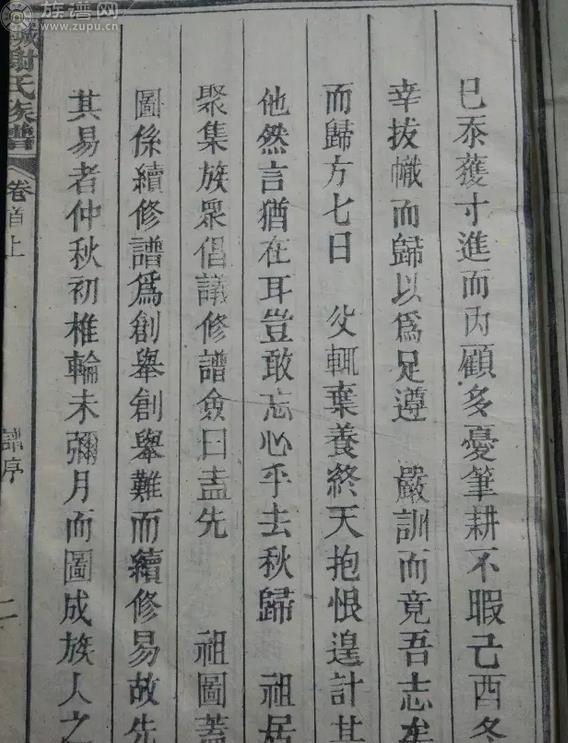 已忝獲寸進而內顧多憂筆耕不暇己酉冬
幸拔幟而歸以爲足遵 嚴訓而竟吾志矣
而歸方七日 父輒棄養終天抱恨遑計其
他然言猶在耳豈敢忘心乎去秋歸 祖居
聚集族眾倡議修譜僉曰盍先 祖圖蓋
圖係續修譜爲創舉創舉難而續修易故先
其易者仲秋初椎輪未彌月而圖成族人之
謝氏族譜
卷首上
譜序
二
族谱网
www.zupu.cn